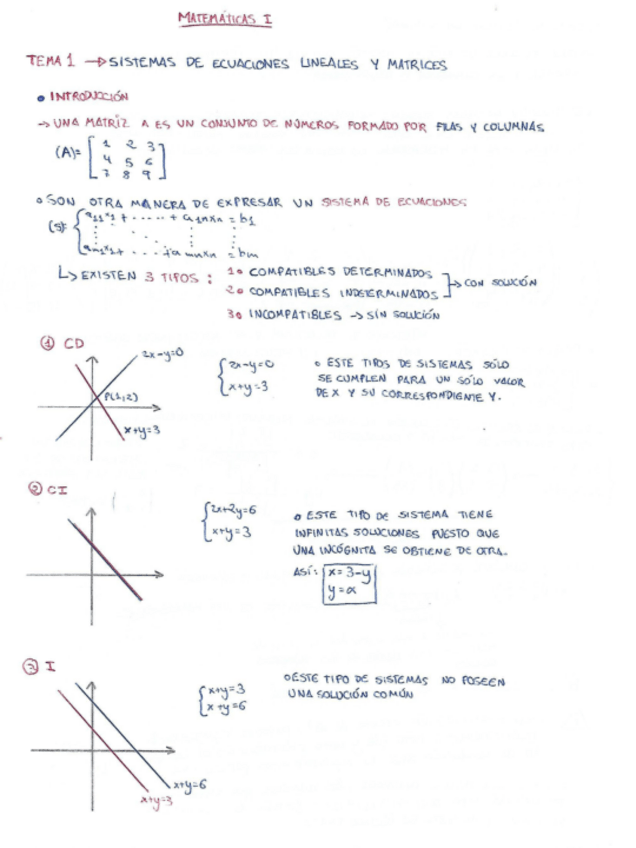 MATEMÁTICAS I
TEMA 1 → SISTEMAS DE ECUACIONES LINEALES Y MATRICES
• INTRODUCCIÓN
→ UNA MATRIZ A ES UN CONJUNTO DE NÚMEROS FORMADO POR FILAS Y COLUMNAS
(A)= [1 2 3
4 5 6
7 8 9]
• SON OTRA MANERA DE EXPRESAR UN SISTEMA DE ECUACIONES
(S) { a11x1 + ..... + a1nxn = b1
am1x1 + ... + amnxn = bm
↳ EXISTEN 3 TIPOS :
1• COMPATIBLES DETERMINADOS
2• COMPATIBLES INDETERMINADOS
→ CON SOLUCIÓN
3• INCOMPATIBLES → SIN SOLUCIÓN
① CD
2x-y=0
P(1,2)
x+y=3
{ 2x-y=0
x+y=3
• ESTE TIPOS DE SISTEMAS SÓLO
SE CUMPLEN PARA UN SÓLO VALOR
DE X Y SU CORRESPONDIENTE Y.
② CI
{ 2x+2y=6
x+y=3
• ESTE TIPO DE SISTEMA TIENE
INFINITAS SOLUCIONES PUESTO QUE
UNA INCÓGNITA SE OBTIENE DE OTRA.
ASÍ: x=3-y
y=α
③ I
{ x+y=3
x+y=6
• ESTE TIPO DE SISTEMAS NO POSEEN
UNA SOLUCIÓN COMÚN
x+y=6
x+y=3